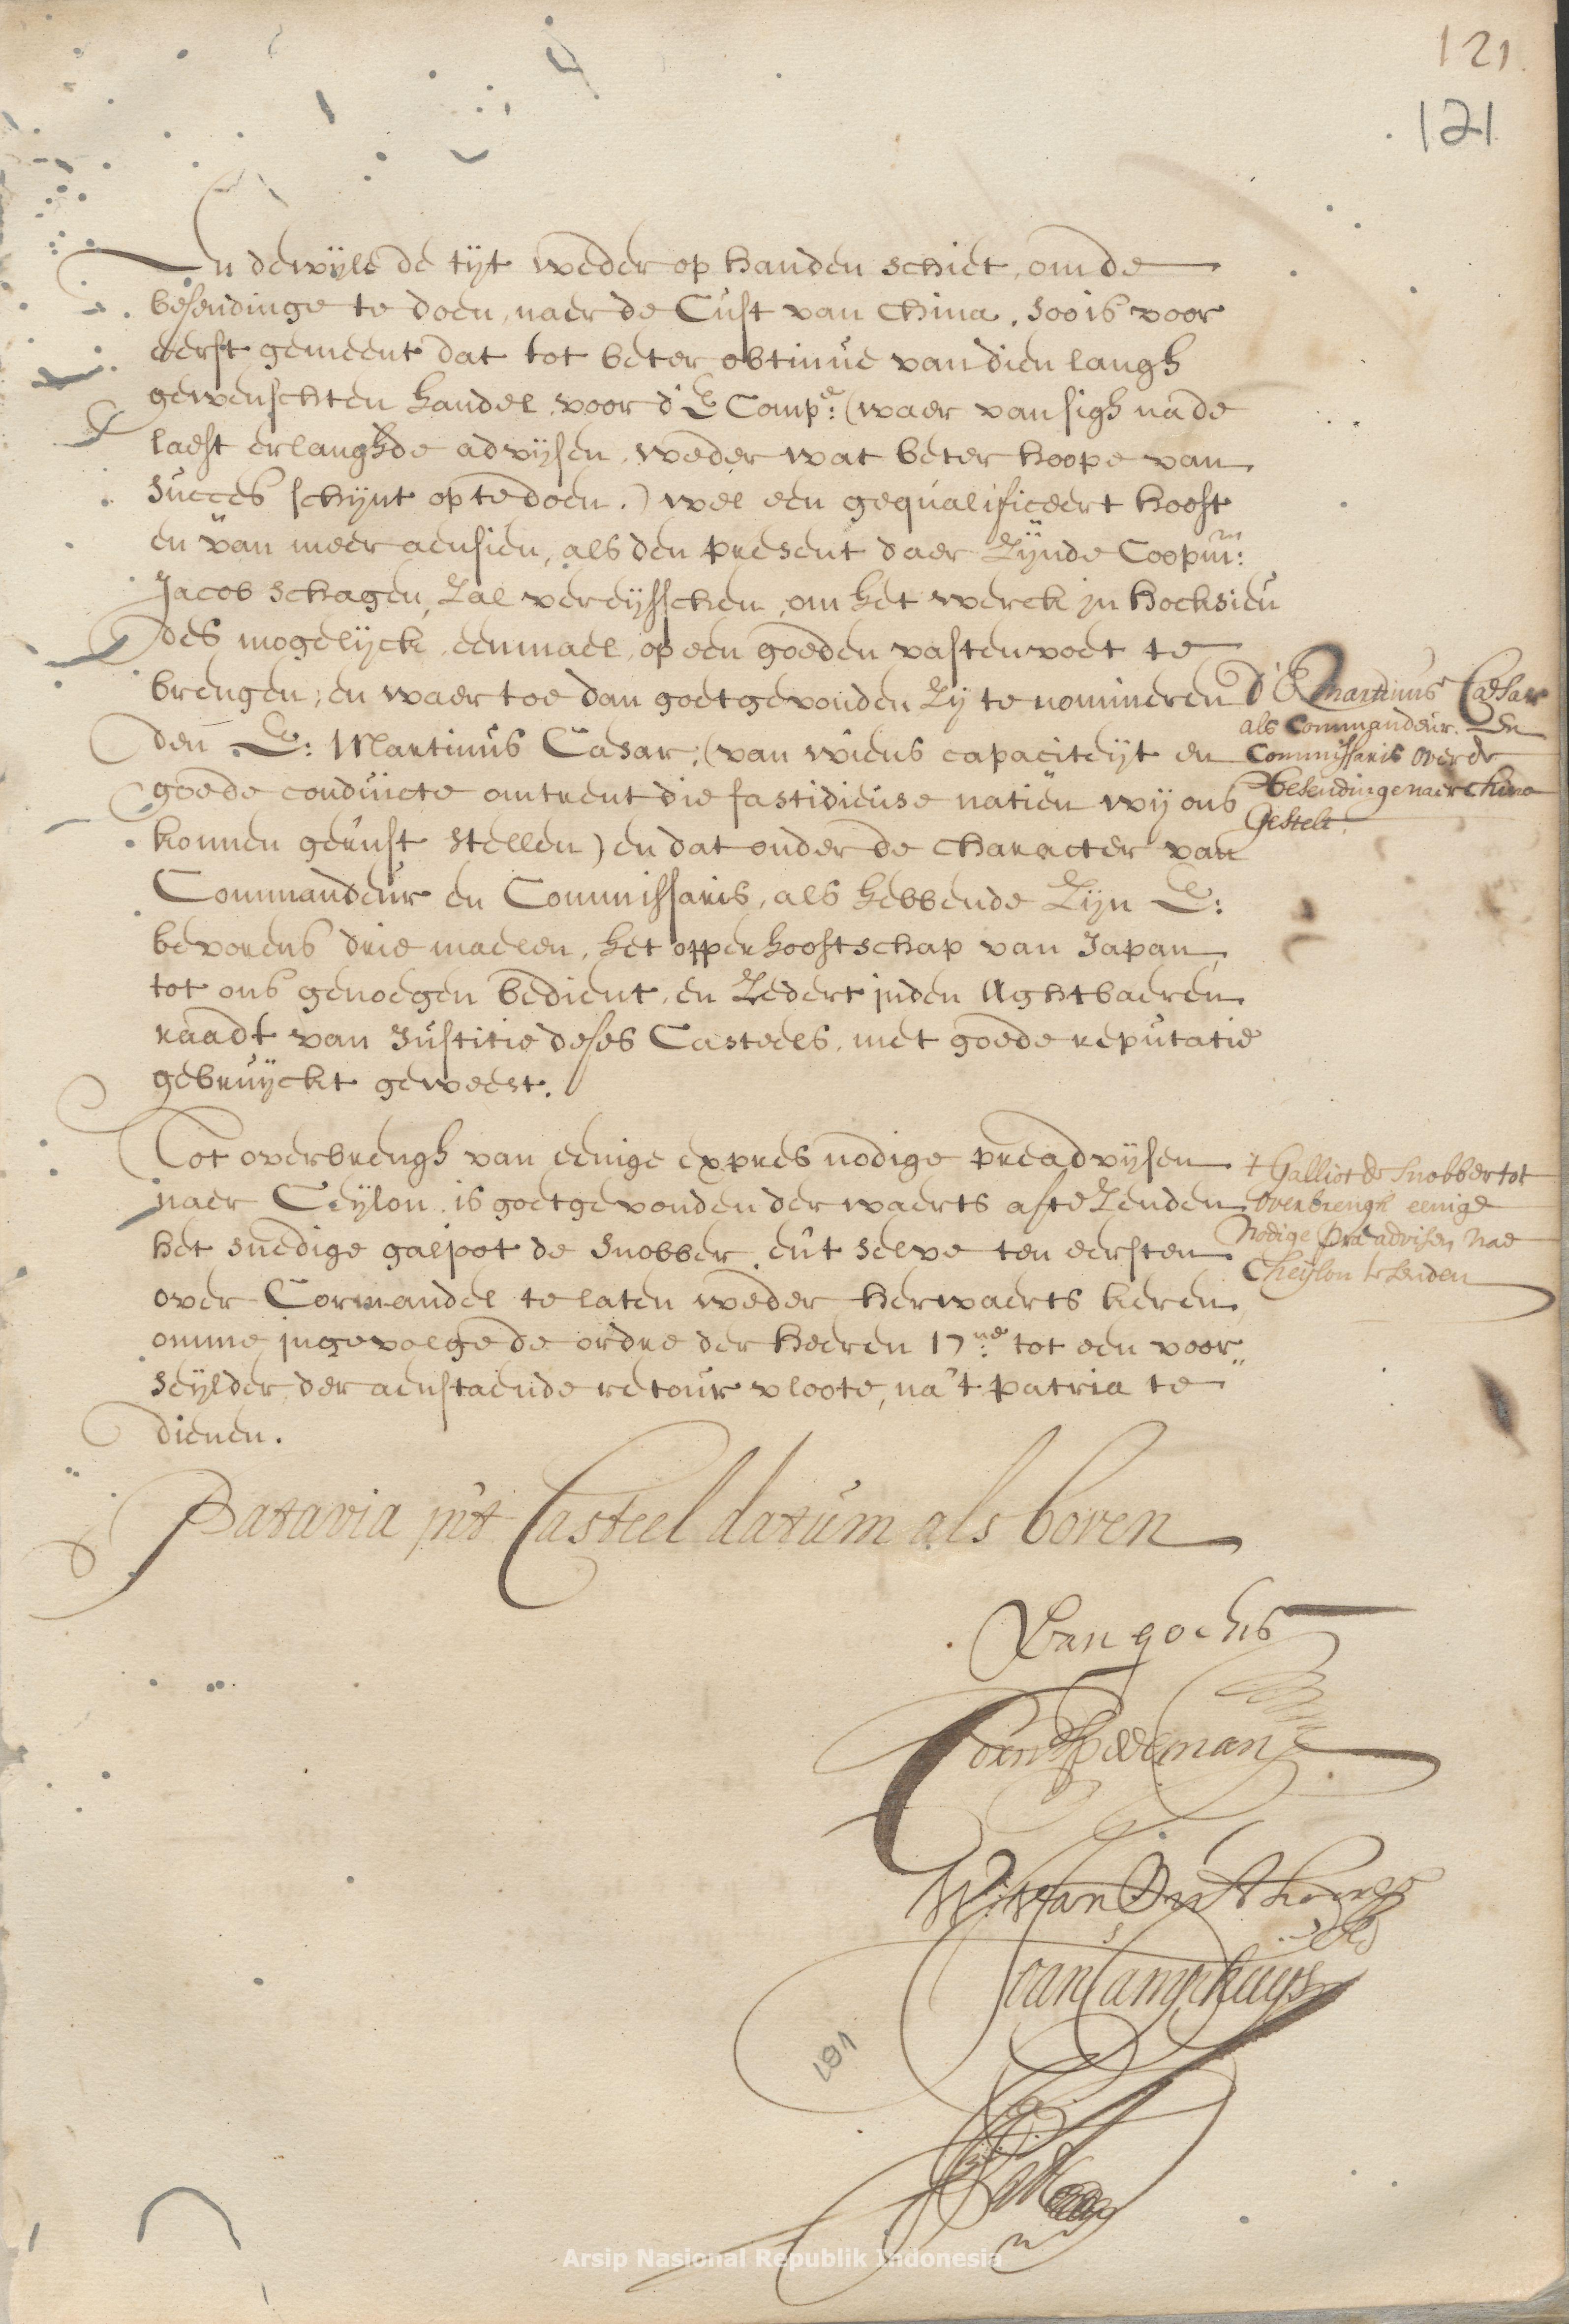 121.
121
En dewÿle de tÿt weder op handen schiet, om de
besendinge te doen, naer de Cust van China, soo is voor
eerst gemeent dat tot beter obtinue van dien langh
gewenschten handel voor d'E Compe: (waer van sigh na de
laest erlanghde advÿsen, weder wat beter hoope van
succes schÿnt op te doen.) wel een gequalificeert hooft
en van meer aensien, als den present daer Zÿnde Coopm:
Jacob Schagen, Zal vereÿsschen, om het werck in Hocksieu
des mogelÿck, eenmael, op een goeden vasten voet te
brengen; en waer toe dan goetgevonden Zÿ te nomineren
den E: Martinus Cæsar, (van wiens capaciteÿt en
goede conduicte omtrent die fastidieuse natien wÿ ons
konnen gerust stellen) en dat onder de character van
Commandeur en Commissaris, als hebbende Zÿn E:
bevorens drie maelen, het opperhooftschap van Japan
tot ons genoegen bedient, en Zedert in den Aghtbaeren
raadt van Justitie deses Casteels, met goede reputatie
gebruÿckt geweest.
d'E Martinus Cæsar
als Commandeur. En
Commissaris over de
besendinge naer China
Gestelt
Tot overbrengh van eenige expres nodige preadvÿsen
naer Ceÿlon, is goetgevonden derwaerts af te Zenden
het snedige galjoot de Snobber, en't selve ten eersten
over Cormandel te laten weder herwaerts keren
omme in gevolge de ordre der Heeren 17ne: tot een voor„
seÿlder der aenstaende retour vloote, na't patria te
dienen.
't Galliot de Snobber tot
overbrengh eenige
Nodige Præadvisen Nae
Cheÿlon te senden
Batavia in't Casteel datum als boven
Van goens
C Speelman
W: Van Outhoorn
Joan Camphuÿs
191
Arsip Nasional Republik Indonesia